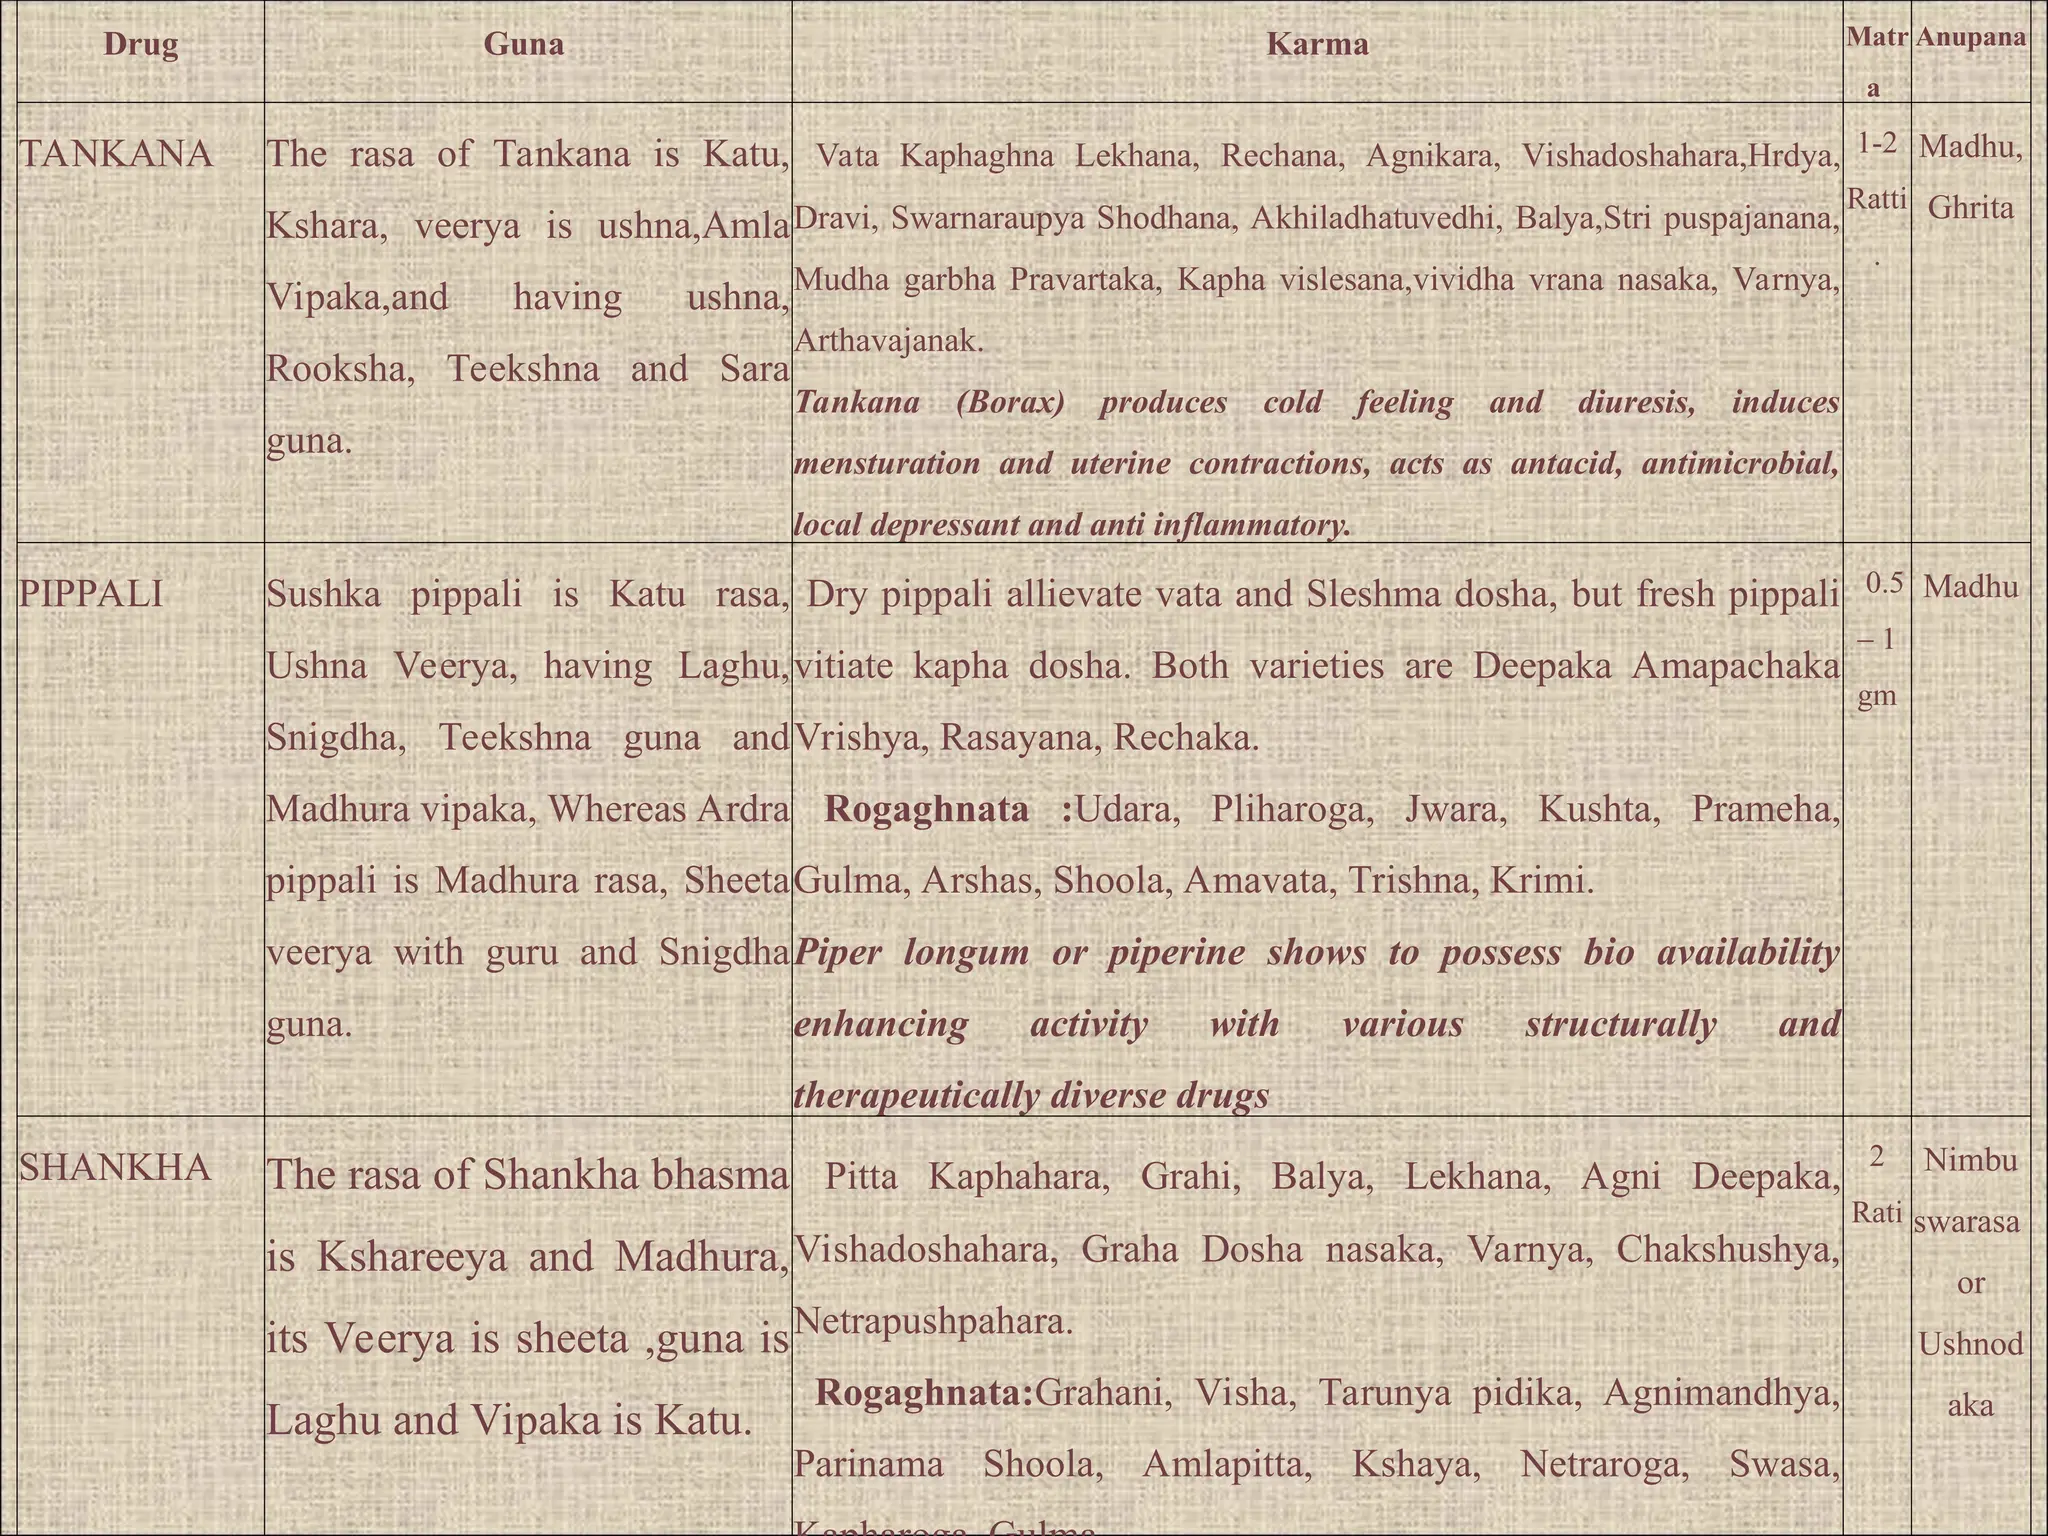 Drug
Guna
Karma
Matr
a
Anupana
TANKANA
The rasa of Tankana is Katu,
Kshara, veerya is ushna,Amla
Vipaka,and having ushna,
Rooksha, Teekshna and Sara
guna.
Vata Kaphaghna Lekhana, Rechana, Agnikara, Vishadoshahara,Hrdya,
Dravi, Swarnaraupya Shodhana, Akhiladhatuvedhi, Balya,Stri puspajanana,
Mudha garbha Pravartaka, Kapha vislesana,vividha vrana nasaka, Varnya,
Arthavajanak.
Tankana (Borax) produces cold feeling and diuresis, induces
mensturation and uterine contractions, acts as antacid, antimicrobial,
local depressant and anti inflammatory.
1-2
Ratti
.
Madhu,
Ghrita
PIPPALI
Sushka pippali is Katu rasa,
Ushna Veerya, having Laghu,
Snigdha, Teekshna guna and
Madhura vipaka, Whereas Ardra
pippali is Madhura rasa, Sheeta
veerya with guru and Snigdha
guna.
Dry pippali allievate vata and Sleshma dosha, but fresh pippali
vitiate kapha dosha. Both varieties are Deepaka Amapachaka
Vrishya, Rasayana, Rechaka.
Rogaghnata :Udara, Pliharoga, Jwara, Kushta, Prameha,
Gulma, Arshas, Shoola, Amavata, Trishna, Krimi.
Piper longum or piperine shows to possess bio availability
enhancing activity with various structurally and
therapeutically diverse drugs
0.5
– 1
gm
Madhu
SHANKHA
The rasa of Shankha bhasma
is Kshareeya and Madhura,
its Veerya is sheeta ,guna is
Laghu and Vipaka is Katu.
Pitta Kaphahara, Grahi, Balya, Lekhana, Agni Deepaka,
Vishadoshahara, Graha Dosha nasaka, Varnya, Chakshushya,
Netrapushpahara.
Rogaghnata:Grahani, Visha, Tarunya pidika, Agnimandhya,
Parinama Shoola, Amlapitta, Kshaya, Netraroga, Swasa,
Kapharoga, Gulma
2
Rati
Nimbu
swarasa
or
Ushnod
aka